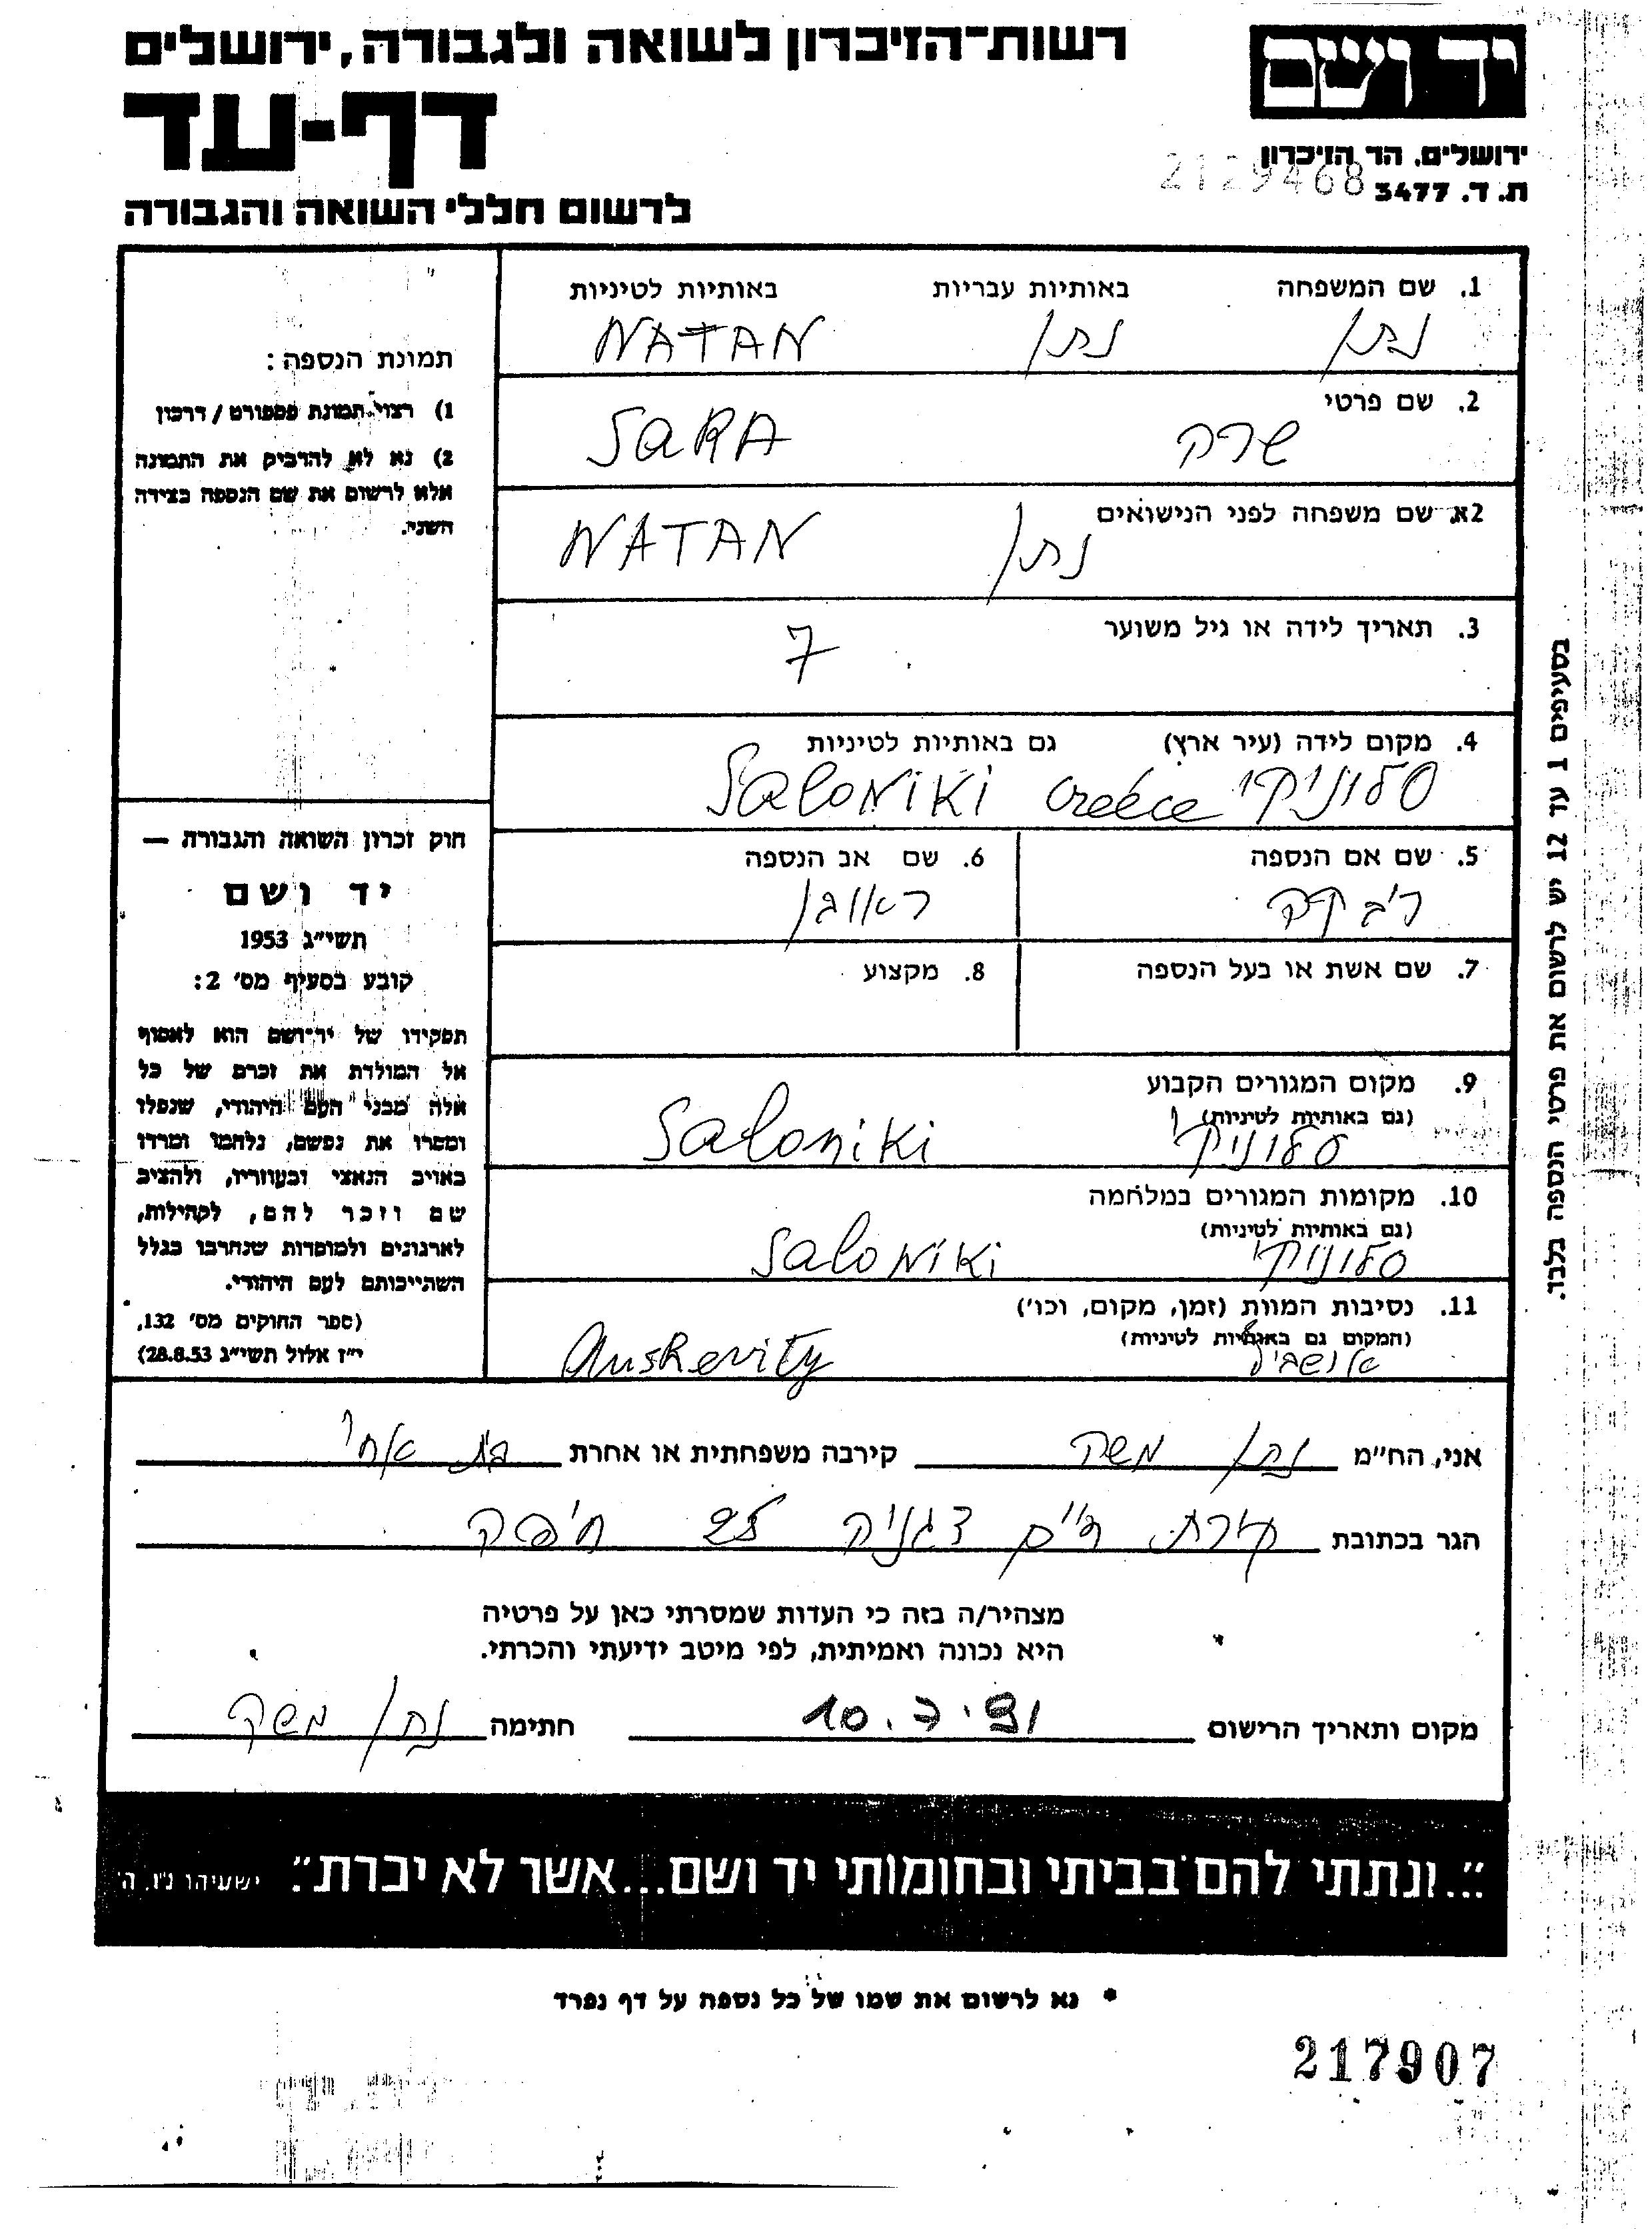 רשות-הזיכרון לשואה ולגבורה, ירושלים
יד ושם
דף-עד
ירושלים. הר הזיכרון
ת.ד. 3477
2129468
לרשום חללי השואה והגבורה
1. שם המשפחה באותיות עבריות באותיות לטיניות
נתן נתן NATAN
2. שם פרטי
שרה SARA
2א. שם משפחה לפני הנישואים
נתן NATAN
3. תאריך לידה או גיל משוער
7
4. מקום לידה (עיר ארץ) גם באותיות לטיניות
סלוניקי Greece SaloNiKi
5. שם אם הנספה
רבקה
6. שם אב הנספה
ראובן
7. שם אשת או בעל הנספה
8. מקצוע
9. מקום המגורים הקבוע
(גם באותיות לטיניות)
סלוניקי Saloniki
10. מקומות המגורים במלחמה
(גם באותיות לטיניות)
סלוניקי SaloNiKi
11. נסיבות המוות (זמן, מקום, וכו')
(המקום גם באותיות לטיניות)
תמונת הנספה:
1) רצוי תמונת פספורט / דרכון
2) נא לא להדביק את התמונה
אלא לרשום את שם הנספה בצידה
השני.
חוק זכרון השואה והגבורה —
יד ושם
תשי"ג 1953
קובע בסעיף מס' 2:
תפקידו של יד-ושם הוא לאסוף
אל המולדת את זכרם של כל
אלה מבני העם היהודי, שנפלו
ומסרו את נפשם, נלחמו ומרדו
באויב הנאצי ובעוזריו, ולהציב
שם וזכר להם, לקהילות,
לארגונים ולמוסדות שנחרבו בגלל
השתייכותם לעם היהודי.
(ספר החוקים מס' 132,
י"ז אלול תשי"ג 28.8.53)
בסעיפים 1 עד 12 יש לרשום את פרטי הנספה בלבד.
אני, הח"מ נתן משה קירבה משפחתית או אחרת בת אחי
הגר בכתובת קרית חיים דגניה 25 חיפה
מצהיר/ה בזה כי העדות שמסרתי כאן על פרטיה
היא נכונה ואמיתית, לפי מיטב ידיעתי והכרתי.
מקום ותאריך הרישום 10.7.91 חתימה נתן משה
"...ונתתי להם בביתי ובחומותי יד ושם...אשר לא יכרת". ישעיהו נ"ו. ה'
* נא לרשום את שמו של כל נספה על דף נפרד
217907